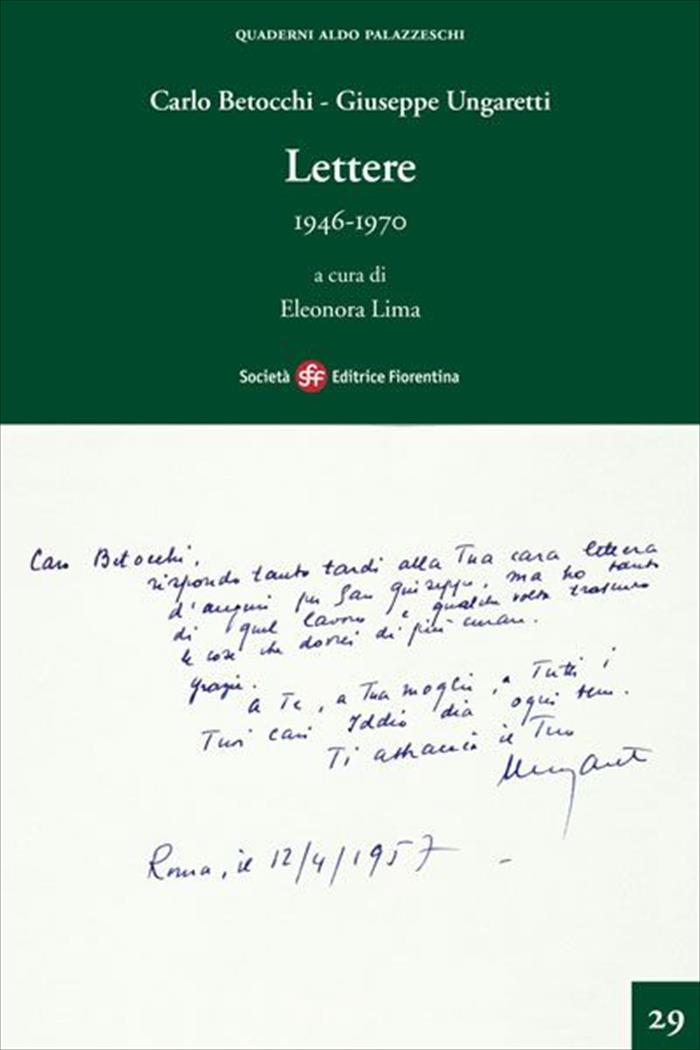 QUADERNI ALDO PALAZZESCHI
Carlo Betocchi - Giuseppe Ungaretti
Lettere
1946-1970
a cura di
Eleonora Lima
Società sff Editrice Fiorentina
Caro Betocchi,
rispondo tanto tardi alla Tua cara lettera
d'auguri per San Giuseppe, ma ho tanto
di quel lavoro e qualche volta trascuro
le cose che dovrei di più curare.
Grazie.
A Te, a Tua moglie, a Tutti i
Tuoi cari Iddio dia ogni bene.
Ti abbraccia il Tuo
Ungaretti
Roma, il 12/4/1957
29